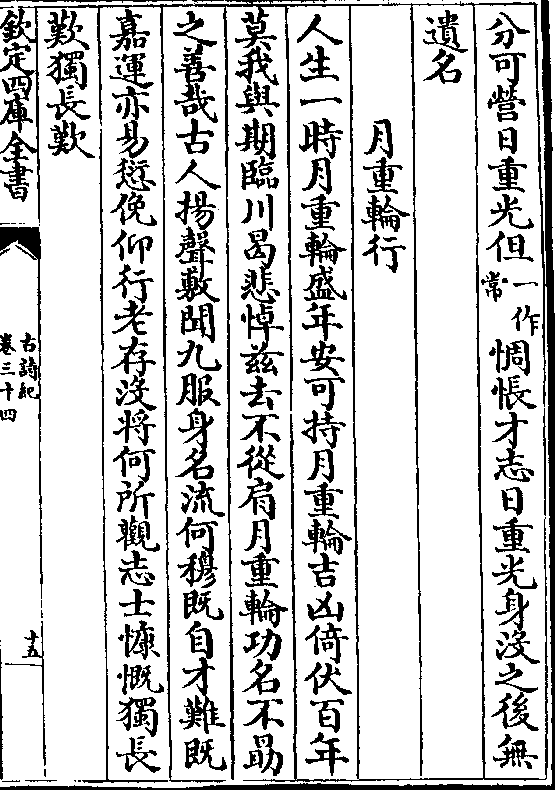 分可營日重光但一作常惆悵才志日重光身沒之後無
遺名
月重輪行
人生一時月重輪盛年安可持月重輪吉凶倚伏百年
莫我與期臨川曷悲悼茲去不從肩月重輪功名不勗
之善哉古人揚聲敷聞九服身名流何穆既自才難既
嘉運亦易愆俛仰行老存沒將何所觀志士慷慨獨長
歎獨長歎
欽定四庫全書
古詩紀
卷三十四
十五